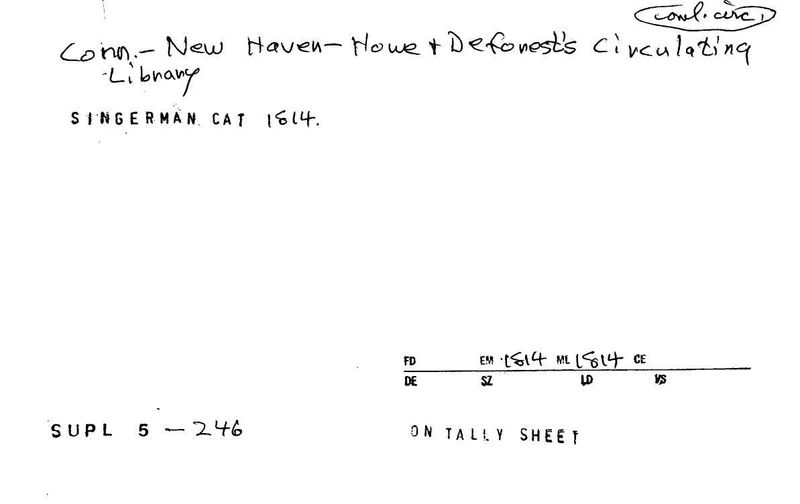 coml. circ.
Conn.- New Haven- Howe + Deforest's Circulating
Library
SINGERMAN CAT 1814.
FD EM 1814 ML 1814 CE
DE SZ LD VS
SUPL 5 - 246
ON TALLY SHEET